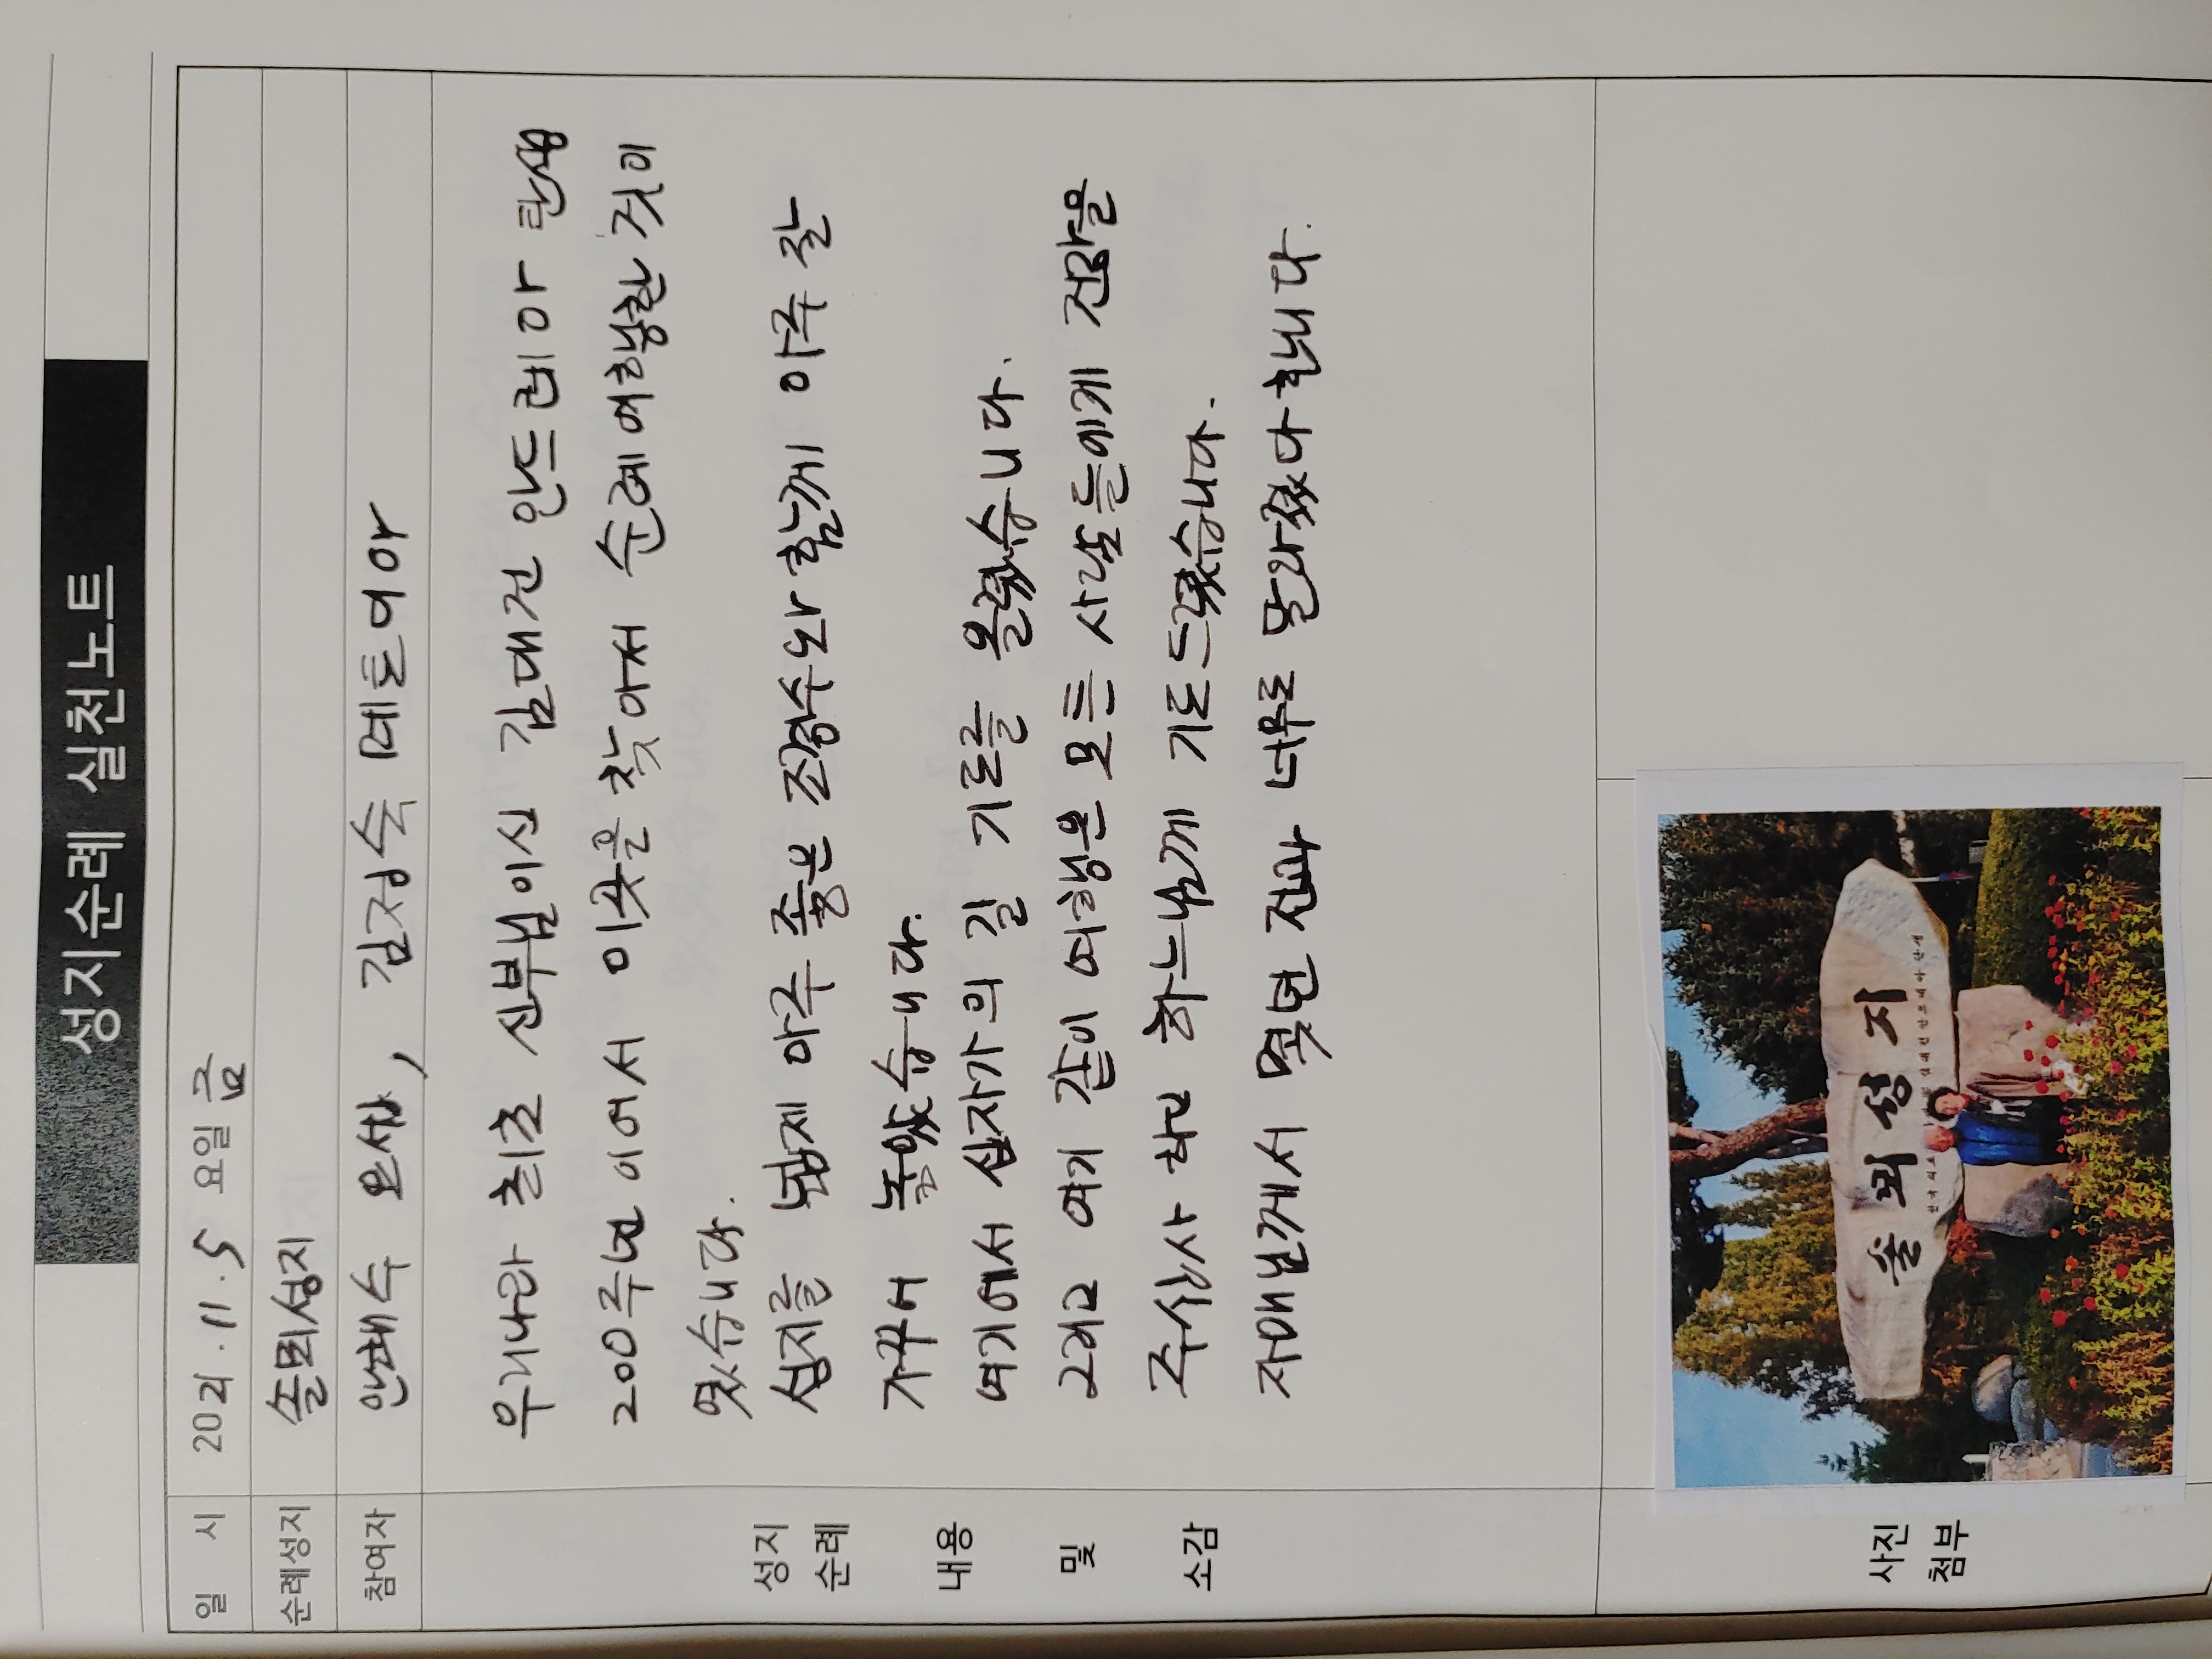 성지순례 실천노트
일 시 2021.11.5 요일 금
순례성지 솔뫼성지
참여자 안해수 요셉, 김정숙 메토디아
우리나라 최초 신부님이신 김대건 안드레아 탄생
200주년 이어서 이곳을 찾아서 순례여행한 것이
였습니다.
성지를 넓게 아주 좋은 조경수와 함께 아주 잘
가꾸어 놓았습니다.
여기에서 십자가의 길 기도를 올렸습니다.
그리고 여기 같이 여행온 모든 사람들에게 건강을
주십사 하고 하느님께 기도드렸습니다.
자매님께서 몇년 전과 너무도 달라졌다 합니다.
성지
순례
내용
및
소감
사진
첨부
솔뫼성지
한국 최초 김대건안드레아 탄생